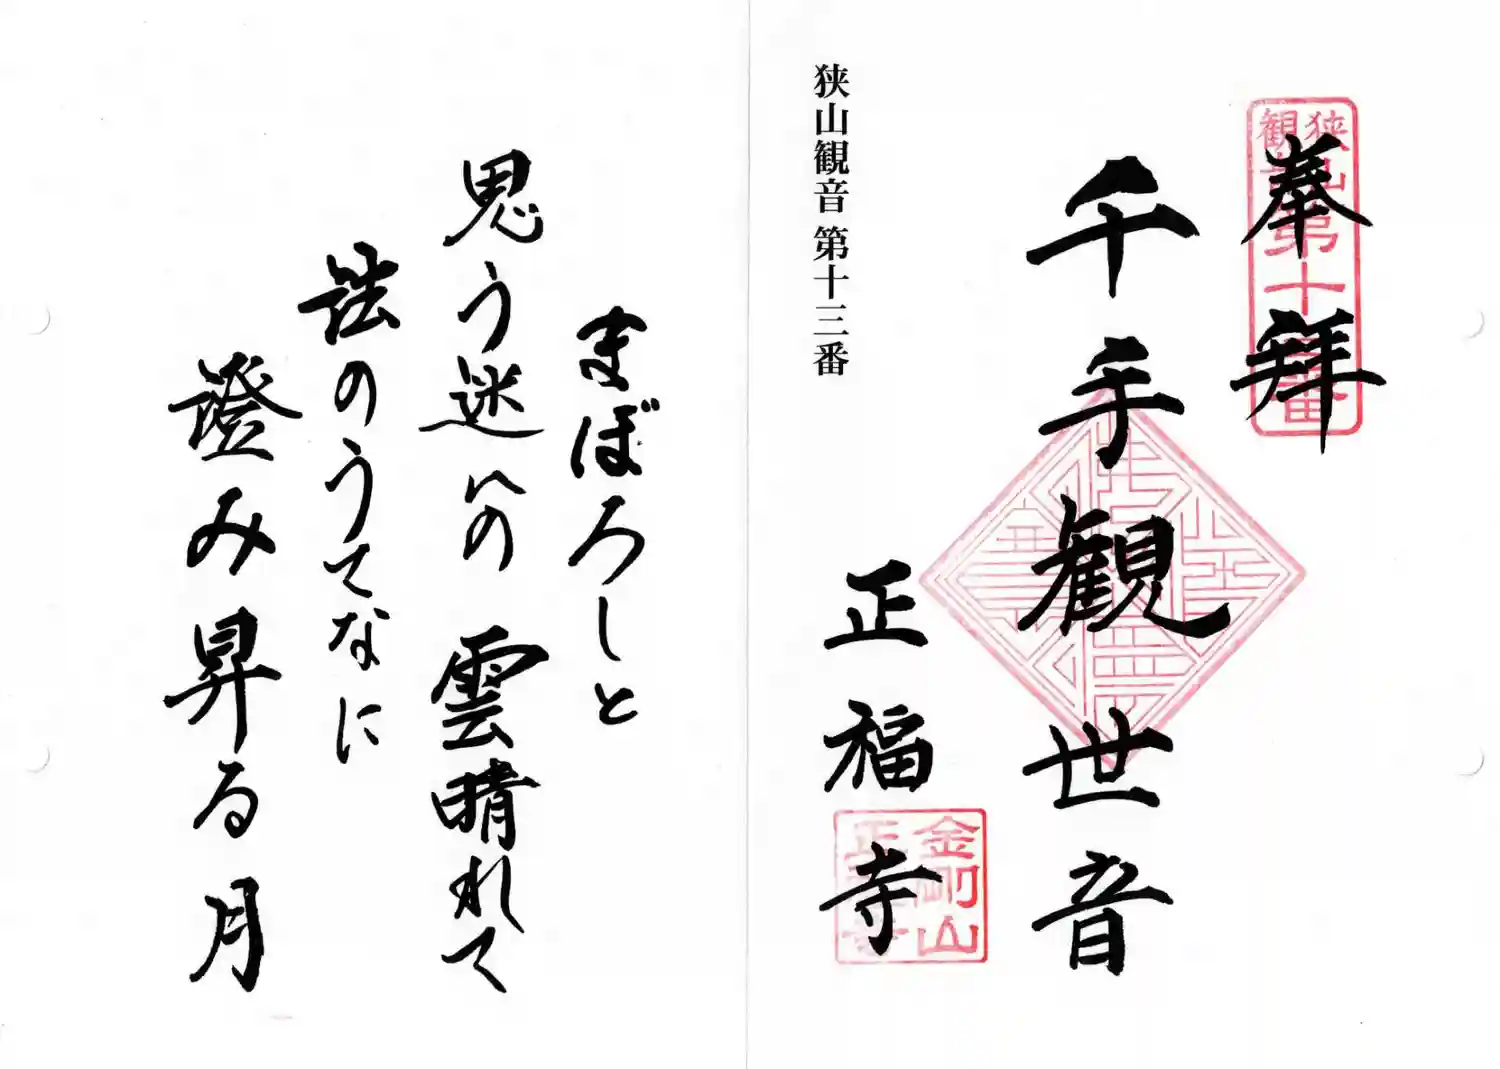 奉拝
狭山
観音
第十三番
千手観世音
正福寺
金剛山
正福寺
狭山観音 第十三番
まぼろしと
思う迷いの 雲晴れて
法のうてなに
澄み昇る月